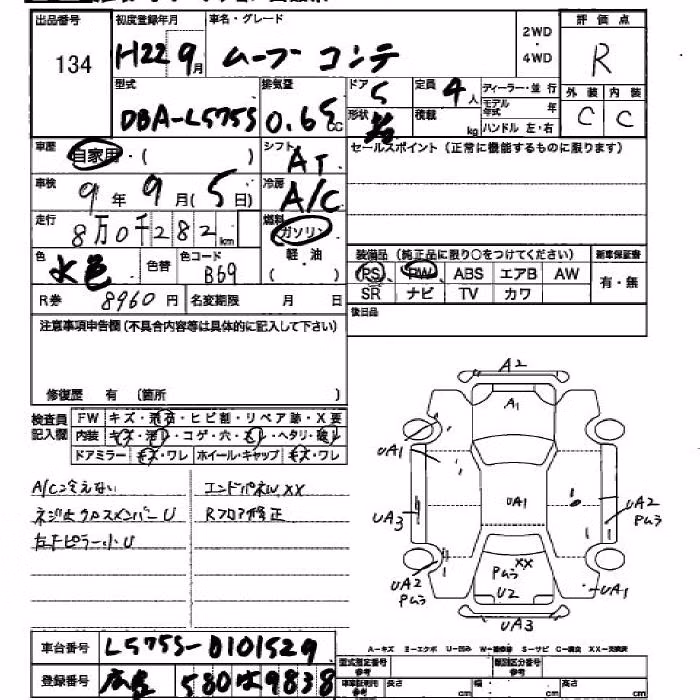 出品番号
134
初度登録年月
H22 9月
車名・グレード
ムーブ コンテ
2WD
・
4WD
評価点
R
外装 内装
C C
型式
DBA-L575S
排気量
0.65 CC
ドア 5
形状
定員 4人
積載 kg
ディーラー・並行
モデル年式 年
ハンドル 左・右
車歴
自家用・( )
シフト
AT
セールスポイント (正常に機能するものに限ります)
車検
9年 9月(5日)
冷房
A/C
走行
8万0千282km
燃料
ガソリン
軽・油
色
水色
色替
色コード
B69
装備品 (純正品に限り○をつけてください)
新車保証書
PS PW ABS エアB AW
有・無
SR ナビ TV カワ
R券 8960円
名変期限 月 日
後日品
注意事項申告欄(不具合内容等は具体的に記入して下さい)
修復歴 有 (箇所 )
検査員記入欄
FW キズ・飛石・ヒビ割・リペア跡・X要
内装
ドアミラー キズ・ワレ ホイール・キャップ キズ・ワレ
A/C冷えない
エンドパネルXX
Rフロア修正
A2
A1
UA1
UA1
UA3
UA2
UA2
UA1
XX
U2
UA3
A-キズ E-エクボ U-凹み W-補修跡 S-サビ C-腐食 XX-交換済
車台番号
L575S-0101529
型式指定番号 参考
類別区分番号 参考
登録番号
広島 580 は 9838
車車証明用 参考
長さ cm 幅 cm 高さ cm